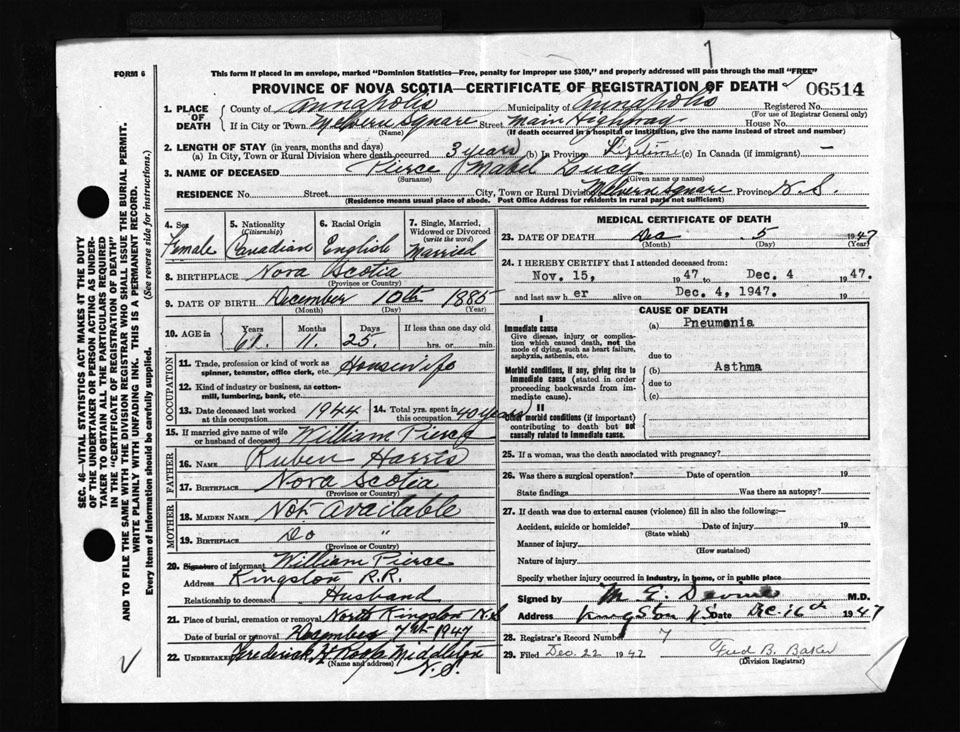 FORM 6
This form if placed in an envelope, marked "Dominion Statistics—Free, penalty for improper use $300," and properly addressed will pass through the mail "FREE"
PROVINCE OF NOVA SCOTIA—CERTIFICATE OF REGISTRATION OF DEATH 06514
1. PLACE OF DEATH County of Annapolis Municipality of Annapolis Registered No.
(For use of Registrar General only)
If in City or Town Melvern Square Street Main Highway House No.
(Name) (If death occurred in a hospital or institution, give the name instead of street and number)
2. LENGTH OF STAY (in years, months and days)
(a) In City, Town or Rural Division where death occurred 3 years (b) In Province Lifetime (c) In Canada (if immigrant) —
3. NAME OF DECEASED Pierce Mabel Lucy
(Surname) (Given name or names)
RESIDENCE No. Street City, Town or Rural Division Melvern Square Province N.S.
(Residence means usual place of abode. Post Office Address for residents in rural parts not sufficient)
4. Sex Female
5. Nationality (Citizenship) Canadian
6. Racial Origin English
7. Single, Married, Widowed or Divorced (write the word) Married
8. BIRTHPLACE Nova Scotia
(Province or Country)
9. DATE OF BIRTH December 10th 1885
(Month) (Day) (Year)
10. AGE in Years 61. Months 11. Days 25. If less than one day old hrs. or min.
OCCUPATION
11. Trade, profession or kind of work as spinner, teamster, office clerk, etc. Housewife
12. Kind of industry or business, as cotton-mill, lumbering, bank, etc.
13. Date deceased last worked at this occupation 1944 14. Total yrs. spent in this occupation 40 years
15. If married give name of wife or husband of deceased William Pierce
FATHER
16. NAME Ruben Harris
17. BIRTHPLACE Nova Scotia
(Province or Country)
MOTHER
18. MAIDEN NAME Not Available
19. BIRTHPLACE Do "
(Province or Country)
20. Signature of informant William Pierce
Address Kingston R.R.
Relationship to deceased Husband
21. Place of burial, cremation or removal North Kingston N.S
Date of burial or removal December 7th 1947
22. UNDERTAKER Frederick Middleton
(Name and address) N.S.
MEDICAL CERTIFICATE OF DEATH
23. DATE OF DEATH Dec 5 1947
(Month) (Day) (Year)
24. I HEREBY CERTIFY that I attended deceased from:
Nov. 15, 1947 to Dec. 4 1947.
and last saw her alive on Dec. 4, 1947. 19
CAUSE OF DEATH
I
Immediate cause
Give disease, injury or complication which caused death, not the mode of dying, such as heart failure, asphyxia, asthenia, etc.
(a) Pneumonia
due to
Morbid conditions, if any, giving rise to immediate cause (stated in order proceeding backwards from immediate cause).
(b) Asthma
due to
(c)
II
Other morbid conditions (if important) contributing to death but not causally related to immediate cause.
25. If a woman, was the death associated with pregnancy?
26. Was there a surgical operation? Date of operation 19
State findings Was there an autopsy?
27. If death was due to external causes (violence) fill in also the following:—
Accident, suicide or homicide? Date of injury 19
(State which)
Manner of injury
(How sustained)
Nature of injury
Specify whether injury occurred in industry, in home, or in public place
Signed by M E Devine M.D.
Address Kingston N.S. Date Dec. 16th 1947
28. Registrar's Record Number 7
29. Filed Dec. 22 1947 Fred B. Baker
(Division Registrar)
SEC. 46—VITAL STATISTICS ACT MAKES IT THE DUTY
OF THE UNDERTAKER OR PERSON ACTING AS UNDER-
TAKER TO OBTAIN ALL THE PARTICULARS REQUIRED
IN THE "CERTIFICATE OF REGISTRATION OF DEATH"
AND TO FILE THE SAME WITH THE DIVISION REGISTRAR WHO SHALL ISSUE THE BURIAL PERMIT.
WRITE PLAINLY WITH UNFADING INK. THIS IS A PERMANENT RECORD.
Every item of information should be carefully supplied. (See reverse side for instructions.)